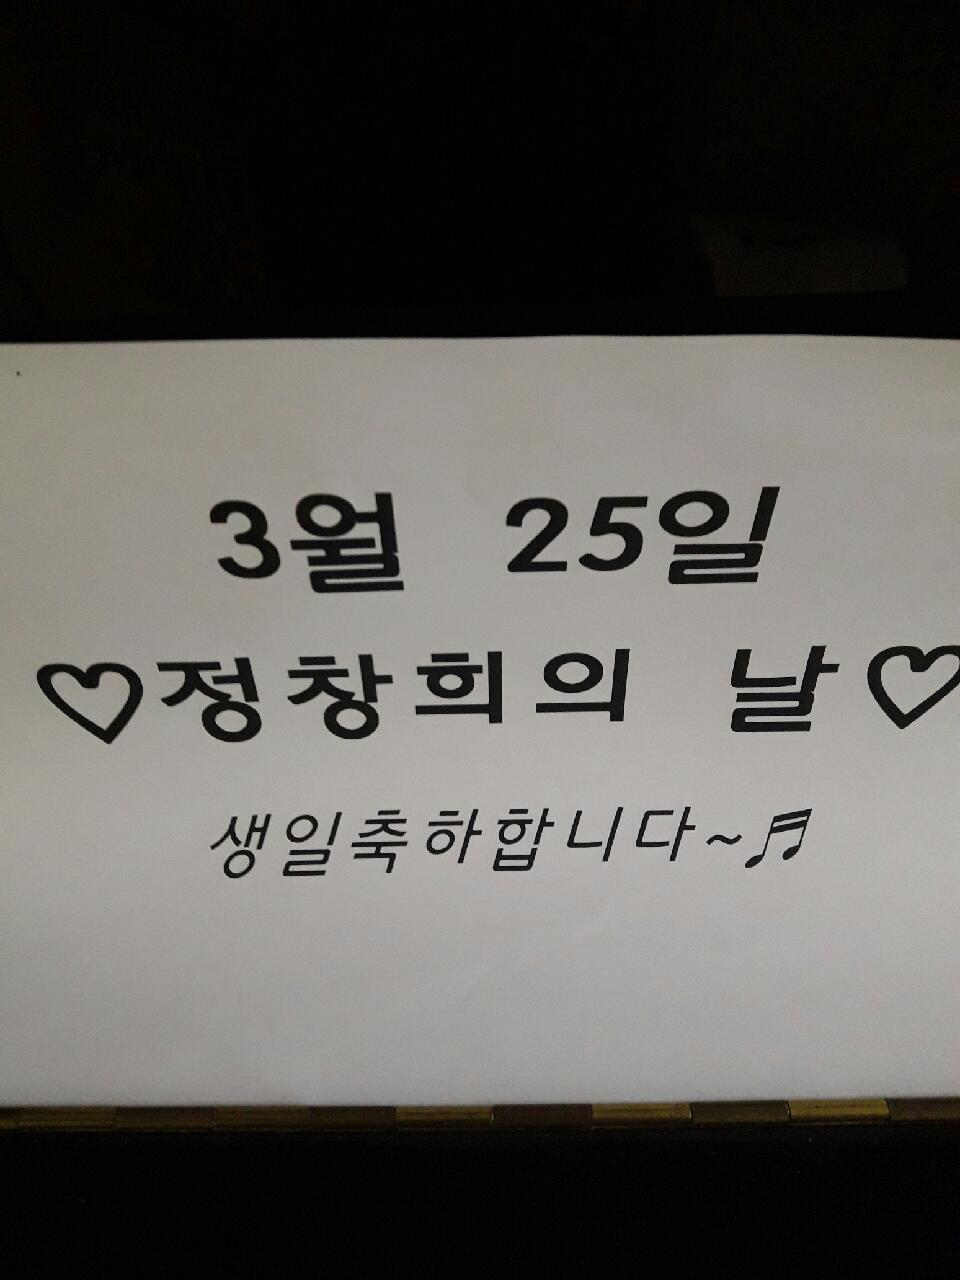 3월 25일
♡정창희의 날♡
생일축하합니다~♬